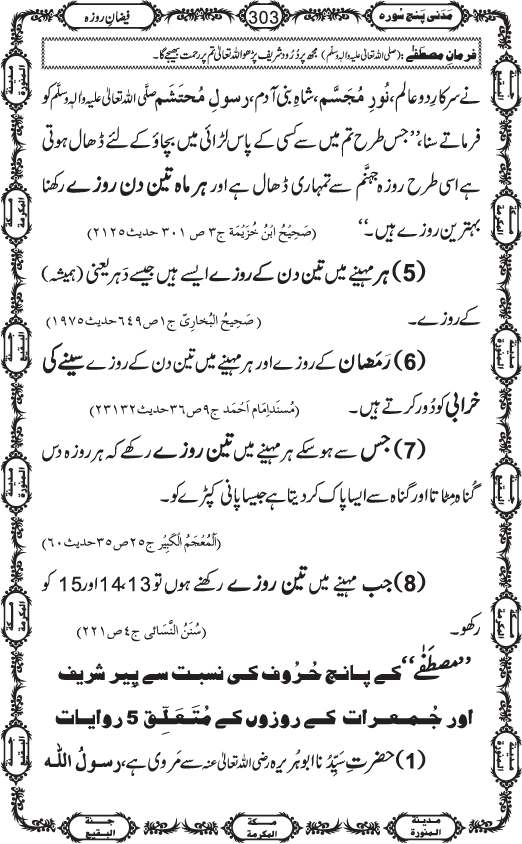 مَدَنی پنج سورہ 303 فیضانِ روزہ
فرمانِ مصطفٰے : (صلی اللہ تعالیٰ علیہ واٰلہٖ وسلّم) مجھ پر دُرُود شریف پڑھو اللہ تعالیٰ تم پر رحمت بھیجے گا۔
نے سرکارِ دو عالم، نُورِ مُجَسَّم، شاہِ بنی آدم، رسولِ مُحتَشَم صلَّی اللہ تعالیٰ علیہ واٰلہٖ وسلَّم کو
فرماتے سنا، ”جس طرح تم میں سے کسی کے پاس لڑائی میں بچاؤ کے لئے ڈھال ہوتی
ہے اسی طرح روزہ جہنَّم سے تمہاری ڈھال ہے اور ہر ماہ تین دن روزے رکھنا
بہترین روزے ہیں۔“ (صَحِیْحُ ابْنُ خُزَیْمَۃ ج۳ ص ۳۰۱ حدیث ۲۱۲۵)
(5) ہر مہینے میں تین دن کے روزے ایسے ہیں جیسے دَہر یعنی (ہمیشہ)
کے روزے۔ (صَحِیحُ البُخارِیّ ج۱ ص۶۴۹ حدیث ۱۹۷۵)
(6) رَمَضان کے روزے اور ہر مہینے میں تین دن کے روزے سینے کی
خرابی کو دُور کرتے ہیں۔ (مُسنَدِ اِمام اَحْمَد ج۹ ص۳۶ حدیث ۲۳۱۳۲)
(7) جس سے ہو سکے ہر مہینے میں تین روزے رکھے کہ ہر روزہ دس
گُناہ مِٹاتا اور گناہ سے ایسا پاک کر دیتا ہے جیسا پانی کپڑے کو۔
(اَلْمُعْجَمُ الْکَبِیْر ج۲۵ ص۳۵ حدیث ۶۰)
(8) جب مہینے میں تین روزے رکھنے ہوں تو 13،14 اور 15 کو
رکھو۔ (سُنَنُ النَّسائی ج۴ ص۲۲۱)
”مصطَفٰے“ کے پانچ حُرُوف کی نسبت سے پیر شریف
اور جُمعرات کے روزوں کے مُتَعَلِّق 5 روایات
(1) حضرتِ سَیِّدُنا ابوہُریرہ رضی اللہ تعالیٰ عنہ سے مَروی ہے، رسولُ اللّٰہ
مدینۃ المنورۃ
مکۃ المکرمۃ
جنۃ البقیع
مدینۃ المنورۃ
مکۃ المکرمۃ
جنۃ البقیع
جنۃ البقیع
مکۃ المکرمۃ
مدینۃ المنورۃ
جنۃ البقیع
مکۃ المکرمۃ
مدینۃ المنورۃ
مدینۃ المنورۃ
مکۃ المکرمۃ
جنۃ البقیع